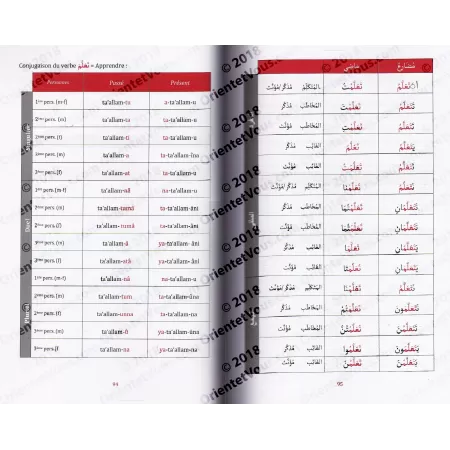 Conjugaison du verbe تَعَلَّمَ = Apprendre :
Personnes Passé Présent
1ère pers. (m-f) ta'allam-tu a-ta'allam-u
2ème pers. (m) ta'allam-ta ta-ta'allam-u
2ème pers. (f) ta'allam-ti
3ème pers. (m) ta'allam-a ya-ta'allam-u
3ème pers. (f) ta'allam-at ta-ta'allam-u
ta'allam-nâ na-ta'allam-u
2ème pers. (m) ta'allam-tumâ ta-ta'allam-âni
2ème pers. (f) ta'allam-tumâ ta-ta'allam-âni
3ème pers. (m) ta'allam-â ya-ta'allam-âni
3ème pers. (f) ta'allam-atâ ta-ta'allam-âni
1ère pers. (m-f) ta'allam-nâ na-ta'allam-u
2ème pers. (m) ta'allam-tum ta-ta'allam-ûna
2ème pers. (f) ta'allam-unna ta-ta'allam-na
3ème pers. (m) ta'allam-û ya-ta'allam-ûna
3ème pers. (f) ta'allam-na ya-ta'allam-na
94
مُضَارِعٌ مَاضِي
أَتَعَلَّمُ تَعَلَّمْتُ المُتَكَلِّم مُذَكَّر/مُؤَنَّث
تَتَعَلَّمُ تَعَلَّمْتَ المُخَاطَب مُذَكَّر
تَعَلَّمْتِ المُخَاطَب مُؤَنَّث
يَتَعَلَّمُ تَعَلَّمَ الغَائِب مُذَكَّر
تَتَعَلَّمُ تَعَلَّمَتْ الغَائِب مُؤَنَّث
نَتَعَلَّمُ تَعَلَّمْنَا المُتَكَلِّم مُذَكَّر/مُؤَنَّث
تَتَعَلَّمَانِ تَعَلَّمْتُمَا المُخَاطَب مُذَكَّر
تَتَعَلَّمَانِ تَعَلَّمْتُمَا المُخَاطَب مُؤَنَّث
يَتَعَلَّمَانِ تَعَلَّمَا الغَائِب مُذَكَّر
تَتَعَلَّمَانِ تَعَلَّمَتَا الغَائِب مُؤَنَّث
نَتَعَلَّمُ تَعَلَّمْنَا المُتَكَلِّم مُذَكَّر/مُؤَنَّث
تَتَعَلَّمُونَ تَعَلَّمْتُمْ المُخَاطَب مُذَكَّر
تَتَعَلَّمْنَ تَعَلَّمْتُنَّ المُخَاطَب مُؤَنَّث
يَتَعَلَّمُونَ تَعَلَّمُوا الغَائِب مُذَكَّر
يَتَعَلَّمْنَ تَعَلَّمْنَ الغَائِب مُؤَنَّث
95
© 2018
OrientetVous.com